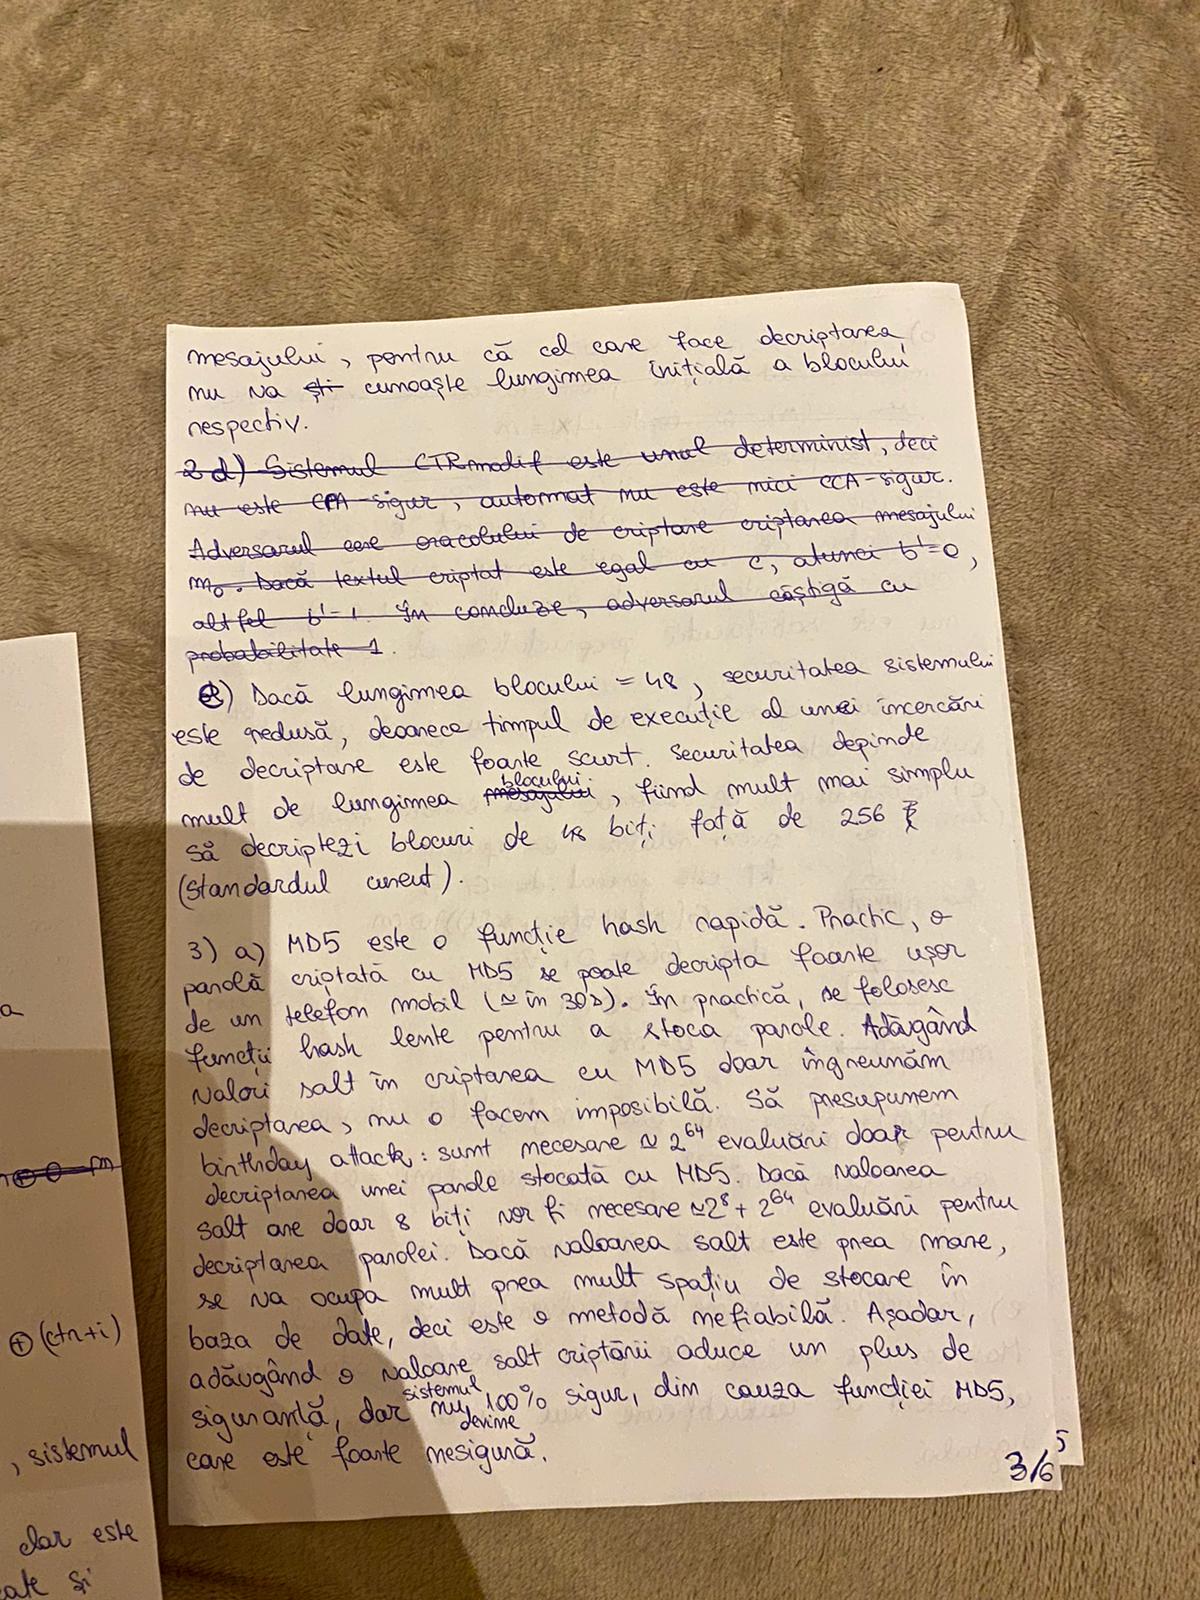 mesajului, pentru că cel care face decriptarea
nu va ști cunoaște lungimea inițială a blocului
respectiv.
2 d) Sistemul CTRmodif este unul determinist, deci
nu este CPA-sigur, automat nu este nici CCA-sigur.
Adversarul cere oracolului de criptare criptarea mesajului
m₀. Dacă textul criptat este egal cu c, atunci b'=0,
altfel b'=1. În concluze, adversarul câștigă cu
probabilitate 1.
e) Dacă lungimea blocului = 48, securitatea sistemului
este redusă, deoarece timpul de execuție al unei încercări
de decriptare este foarte scurt. Securitatea depinde
mult de lungimea mesajului blocului, fiind mult mai simplu
să decriptezi blocuri de 48 biți față de 256
(standardul curent).
3) a) MD5 este o funcție hash rapidă. Practic, o
parolă criptată cu MD5 se poate decripta foarte ușor
de un telefon mobil (≃ în 30s). În practică, se folosesc
funcții hash lente pentru a stoca parole. Adăugând
valori salt în criptarea cu MD5 doar îngreunăm
decriptarea, nu o facem imposibilă. Să presupunem
birthday attack: sunt necesare ≃ 2⁶⁴ evaluări doar pentru
decriptarea unei parole stocată cu MD5. Dacă valoarea
salt are doar 8 biți vor fi necesare ≃2⁸ + 2⁶⁴ evaluări pentru
decriptarea parolei. Dacă valoarea salt este prea mare,
se va ocupa mult prea mult spațiu de stocare în
baza de date, deci este o metodă nefiabilă. Așadar,
adăugând o valoare salt criptării aduce un plus de
siguranță, dar sistemul nu devine 100% sigur, din cauza funcției MD5,
care este foarte nesigură.
3/6
5
a
⊕ 0 = m
⊕ (ctr+i)
, sistemul
dar este
ate și